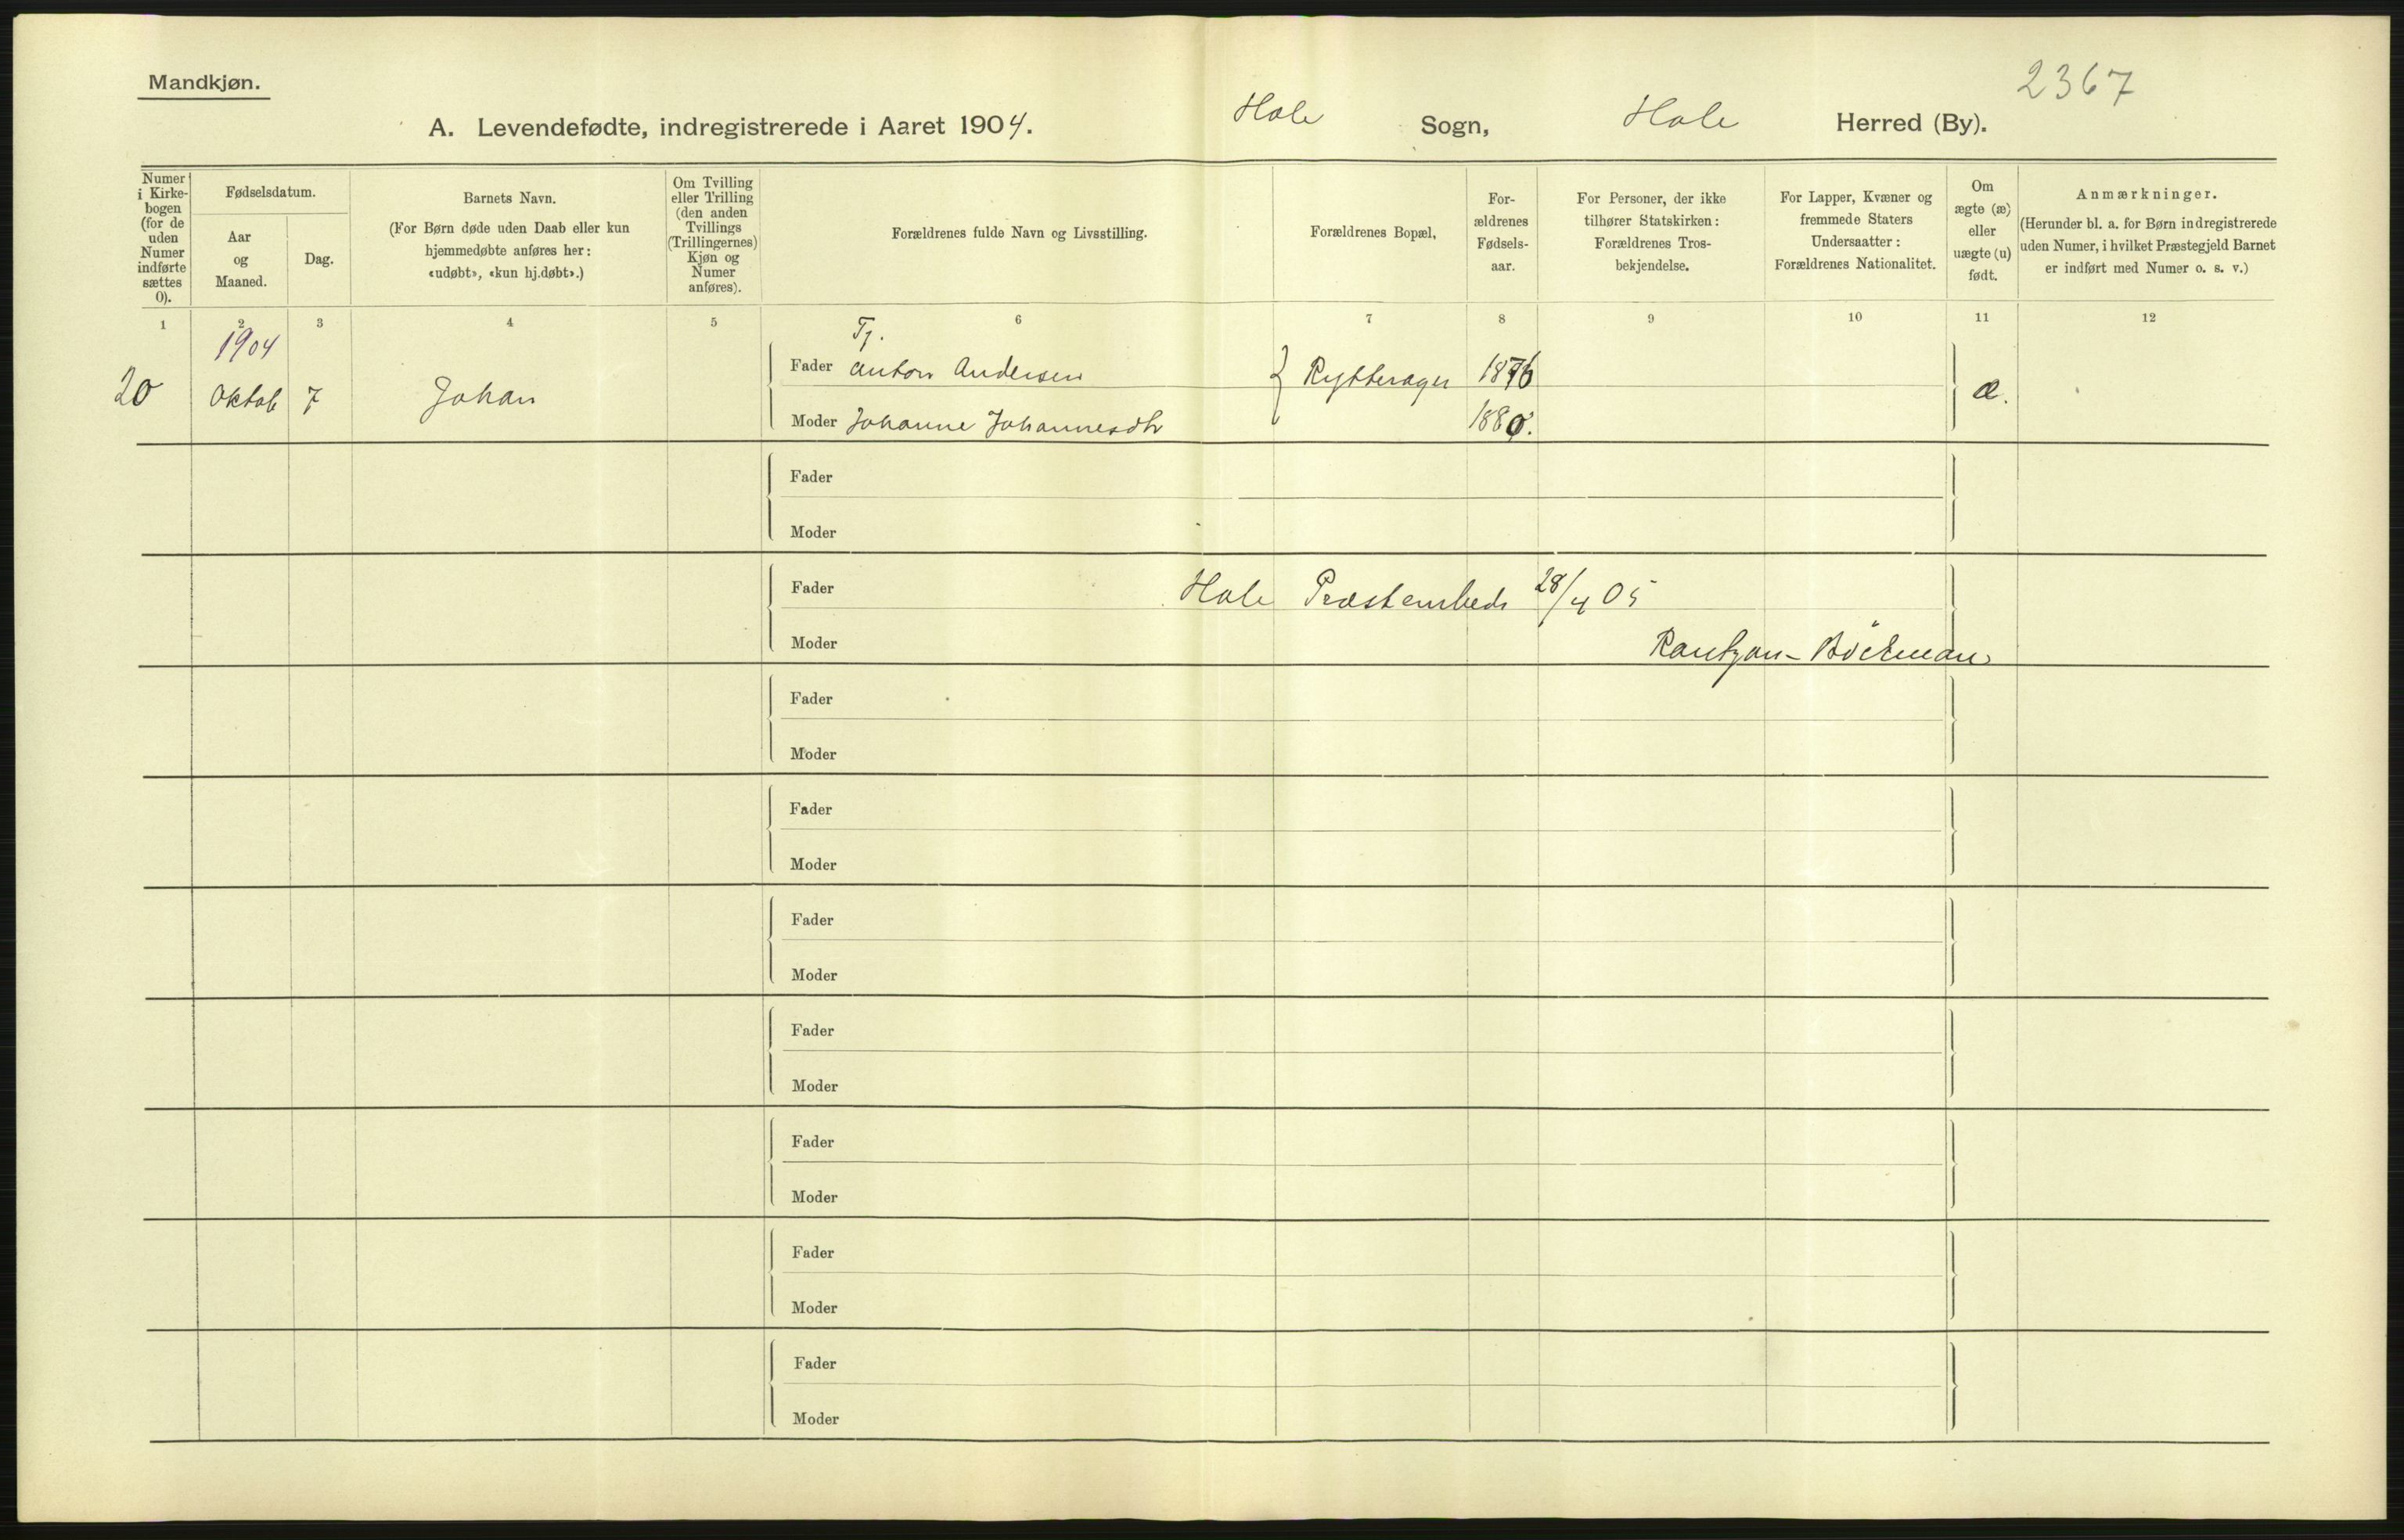 Mandkjøn.
2367
A. Levendefødte, indregistrerede i Aaret 1904. Hole Sogn, Hole Herred (By).
Numer i Kirke- bogen (for de uden Numer indførte sættes 0).
Fødselsdatum.
Aar og Maaned.
Dag.
Barnets Navn.
(For Børn døde uden Daab eller kun
hjemmedøbte anføres her:
«udøbt», «kun hj.døbt».)
Om Tvilling
eller Trilling
(den anden
Tvillings
(Trillingernes)
Kjøn og
Numer
anføres).
Forældrenes fulde Navn og Livsstilling.
Forældrenes Bopæl,
For-
ældrenes
Fødsels-
aar.
For Personer, der ikke
tilhører Statskirken:
Forældrenes Tros-
bekjendelse.
For Lapper, Kvæner og
fremmede Staters
Undersaatter:
Forældrenes Nationalitet.
Om
ægte (æ)
eller
uægte (u)
født.
Anmærkninger.
(Herunder bl. a. for Børn indregistrerede
uden Numer, i hvilket Præstegjeld Barnet
er indført med Numer o. s. v.)
1 2 3 4 5 6 7 8 9 10 11 12
1904 Tj.
Fader Anton Andersen Rytterager 1876
20 Oktob 7 Johan æ.
Moder Johanne Johannesdtr 1880.
Fader
Moder
Fader Hole Præsteembede 28/4 05
Moder Rantzau-Böckman
Fader
Moder
Fader
Moder
Fader
Moder
Fader
Moder
Fader
Moder
Fader
Moder
Fader
Moder